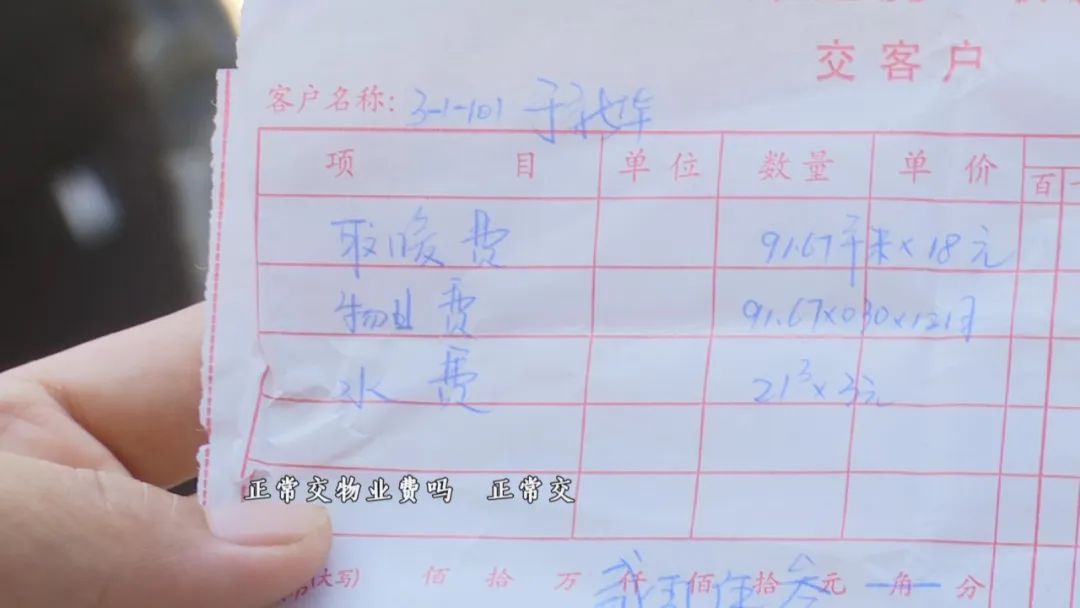 交客户
客户名称: 3-1-101 于
项 目 单位 数量 单价 百
取暖费 91.67平米×18元
物业费 91.67×030×12月
水费 21³×3元
正常交物业费吗 正常交
(大写) 佰 拾 万 仟 佰 拾 元 角 分